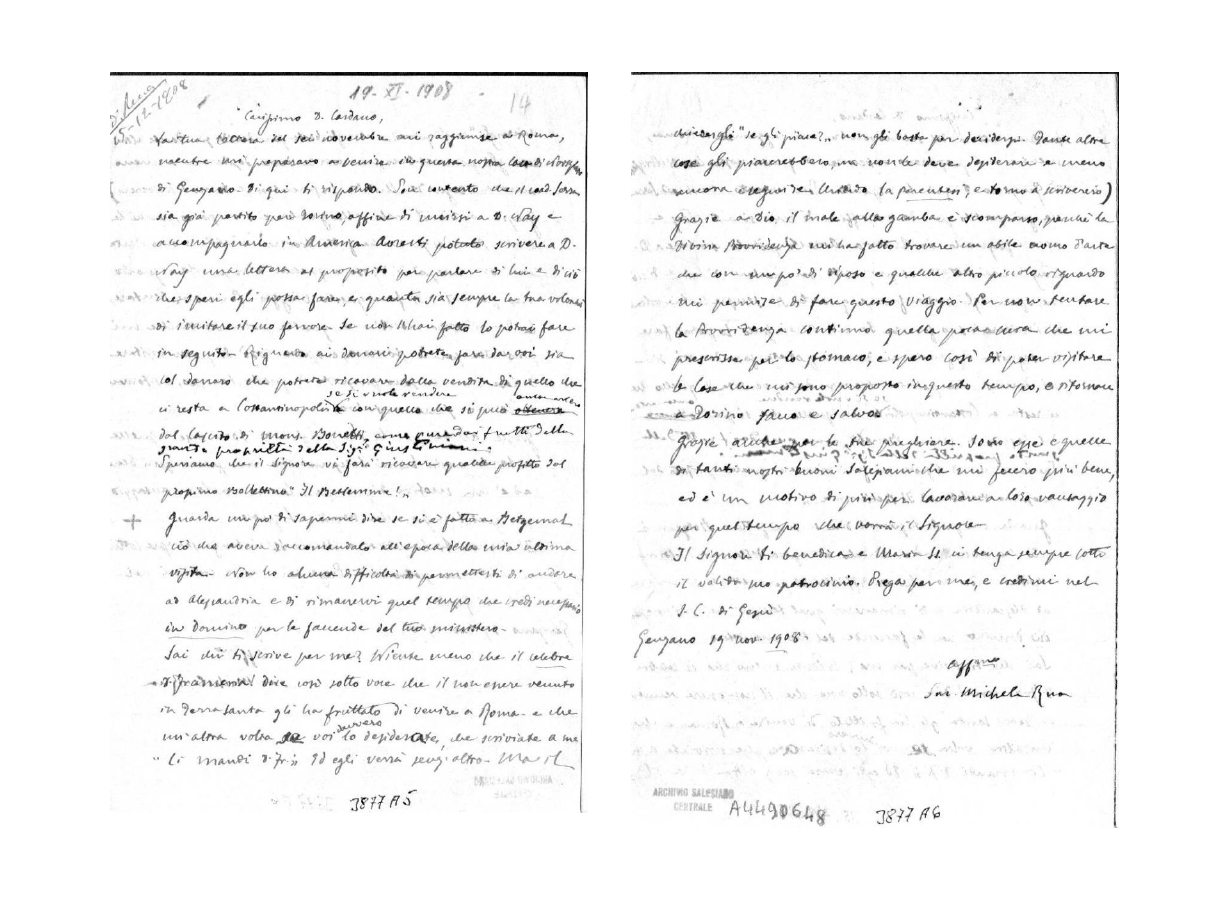 19-XI-1908
14
15-12-1908
Carissimo D. Cardano,
La tua lettera del sei novembre mi raggiunse a Roma,
mentre mi preparavo a venire in questa nostra Casa di
di Genzano. Di qui ti rispondo. Son contento che il
sia già partito per Torino, affine di unirsi a D. Nay e
accompagnarlo in America. Avresti potuto scrivere a D.
Nay una lettera al proposito per parlare di lui e di ciò
che speri egli possa fare, e quanta sia sempre la tua volontà
di imitare il suo fervore. Se non l'hai fatto lo potrai fare
in seguito. Riguardo ai danari potrete fare da voi sia
col danaro che potrete ricavare dalla vendita di quello che
se si vuole vendere
ci resta a Costantinopoli con quello che si può
dal lascito di mons. Bonetti, come pure dai frutti della
grande proprietà della Sig.ª Giustiniani.
Speriamo che il Signore vi farà ricavare qualche profitto dal
prossimo Bollettino "Il Betlemme!"
+ Guarda un po' di sapermi dire se si è fatto a Betgemal
ciò che aveva raccomandato all'epoca della mia ultima
visita. Non ho alcuna difficoltà di permetterti di andare
ad Alessandria e di rimanervi quel tempo che credi necessario
in Domino per le faccende del tuo ministero.
Sai chi ti scrive per me? Niente meno che il celebre
dire così sotto voce che il non essere venuto
in Terra Santa gli ha fruttato di venire a Roma - e che
davvero
un'altra volta se voi lo desiderate, che scriviate a me
"Ci mandi D. Ed egli verrà senz'altro. Ma il
3877 A5
chiedergli "se gli piace?" non gli basta per decidersi. Tante altre
cose gli piacerebbero, ma non le deve desiderare e meno
ancora eseguire. (la parentesi, e torno a scriverci)
Grazie a Dio, il male alla gamba è scomparso, perché la
Divina Provvidenza mi ha fatto trovare un abile uomo d'arte
che con un po' di riposo e qualche altro piccolo riguardo
mi permise di fare questo viaggio. Per non tentare
la Provvidenza continuo quella poca cura che mi
prescrisse per lo stomaco, e spero così di poter visitare
le Case che mi sono proposto in questo tempo, e ritornare
a Torino sano e salvo.
Grazie anche per le tue preghiere. Sono esse e quelle
di tanti nostri buoni Salesiani che mi fecero più bene,
ed è un motivo di più per lavorare a loro vantaggio
per quel tempo che vorrà il Signore.
Il Signore ti benedica e Maria SS. ci tenga sempre sotto
il valido suo patrocinio. Prega per me, e credimi nel
S. C. di Gesù
Genzano 19 nov. 1908.
aff.mo
Sac. Michele Rua
ARCHIVIO SALESIANO
CENTRALE
A4490648
3877 A6